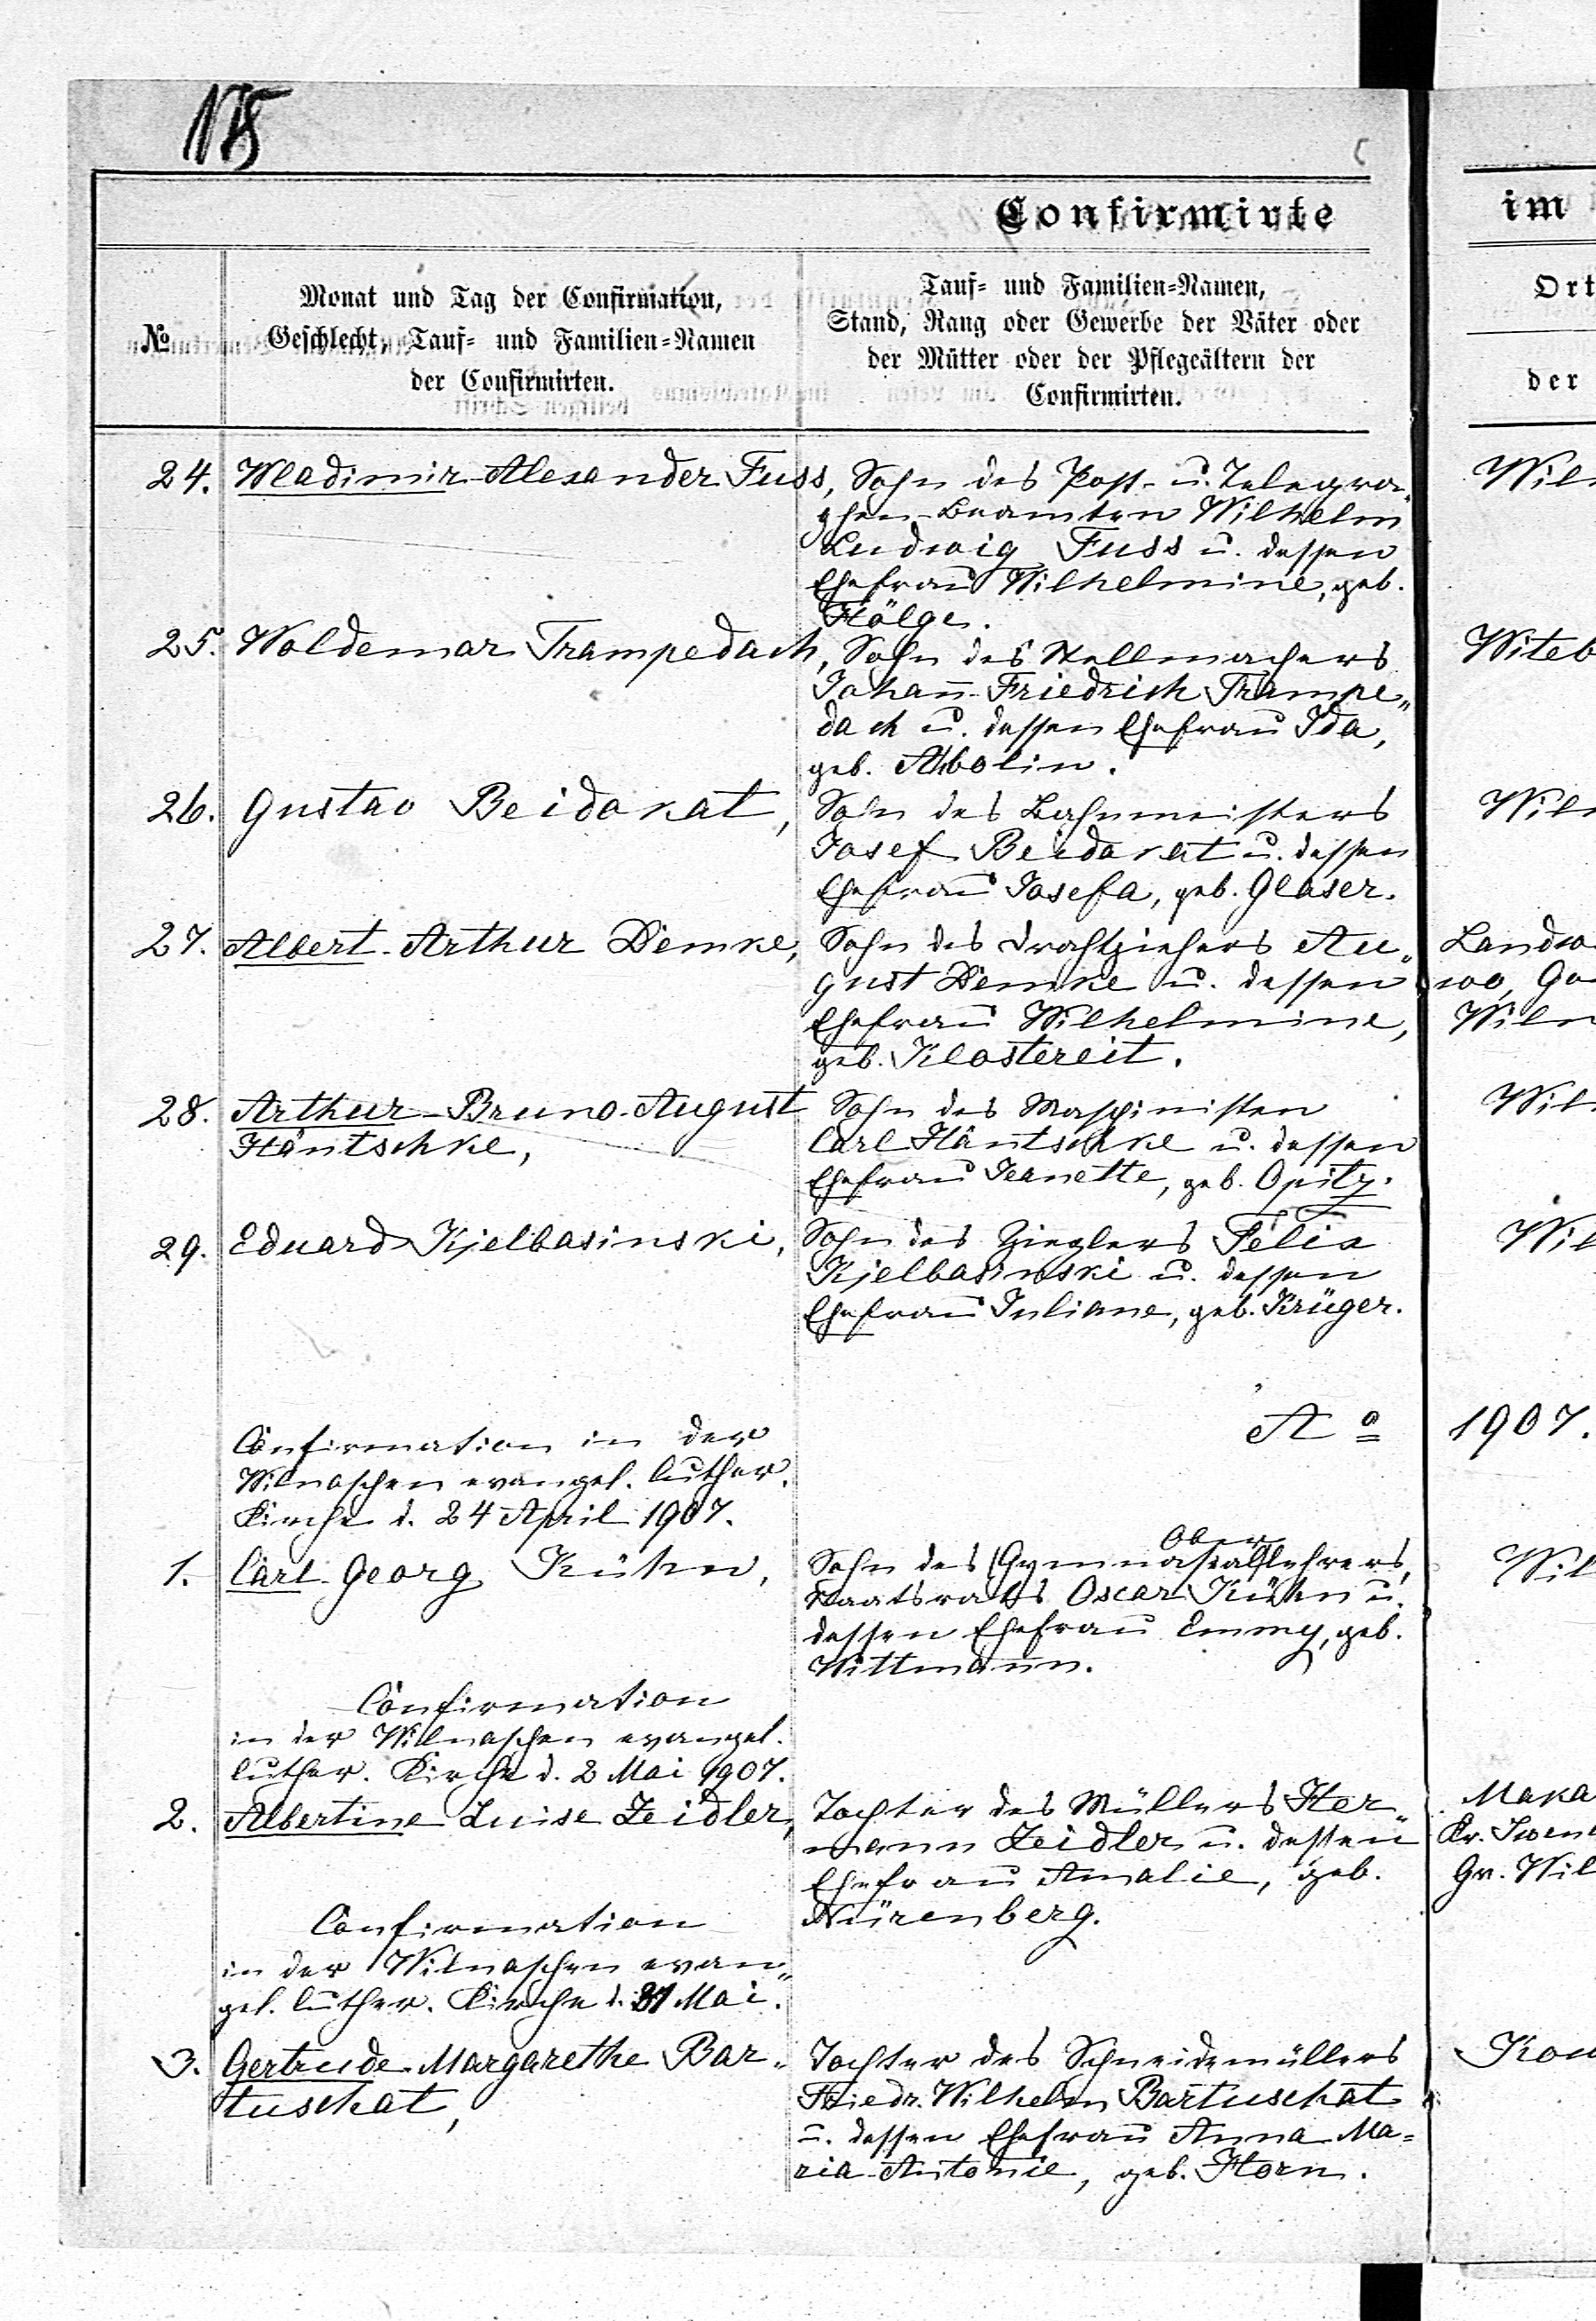 175
Confirmirte
im
№
Monat und Tag der Confirmation,
Geschlecht, Tauf- und Familien-Namen
der Confirmirten.
Tauf- und Familien-Namen,
Stand, Rang oder Gewerbe der Väter oder
der Mütter oder der Pflegeältern der
Confirmirten.
Ort
der
24. Wladimir-Alexander Fuss, Sohn des Post- u. Telegra-
phen-Beamten Wilhelm
Ludwig Fuss u. dessen
Ehefrau Wilhelmine, geb.
Hölge.
Wil
25. Woldemar Trampedach, Sohn des Stellmachers
Johann-Friedrich Trampe„
dach u. dessen Ehefrau Ida,
geb. Abolin.
Witeb
26. Gustav Beidokat, Sohn des Bahnmeisters
Josef Beidokat u. dessen
Ehefrau Josefa, geb. Glaser.
Wil
27. Albert-Arthur Demke, Sohn des Drahtziehers Au„
gust Demke u. dessen
Ehefrau Wilhelmine,
geb. Klostereit.
Landwa
wo, Go
Wiln
28. Arthur-Bruno-August
Häntschke,
Sohn des Maschinisten
Carl Häntschke u. dessen
Ehefrau Jeanette, geb. Opitz.
Wil
29. Eduard Kjelbasinski, Sohn des Zieglers Felix
Kjelbasinski u. dessen
Ehefrau Juliane, geb. Krüger.
Wil
Ao 1907.
Confirmation in der
Wilnaschen evangel. luther.
Kirche d. 24 April 1907.
1. Carl-Georg Kühn, Sohn des Gymnasialoberlehrers,
Staatsraths Oscar Kühn u.
dessen Ehefrau Emmy, geb.
Wittmann.
Wil
Confirmation
in der Wilnaschen evangel.
luther. Kirche d. 2 Mai 1907.
2. Albertine Luise Zeidler, Tochter des Müllers Her„
mann Zeidler u. dessen
Ehefrau Amalie, geb.
Nürenberg.
Maka
Kr. Swen
Gv. Wil
Confirmation
in der Wilnaschen evan„
gel. luther. Kirche d. 31 Mai.
3. Gertrude-Margarethe Bar„
tuschat,
Tochter des Schneidemüllers
Friedr. Wilhelm Bartuschat
u. dessen Ehefrau Anna-Ma=
ria-Antonie, geb. Horn.
Kow